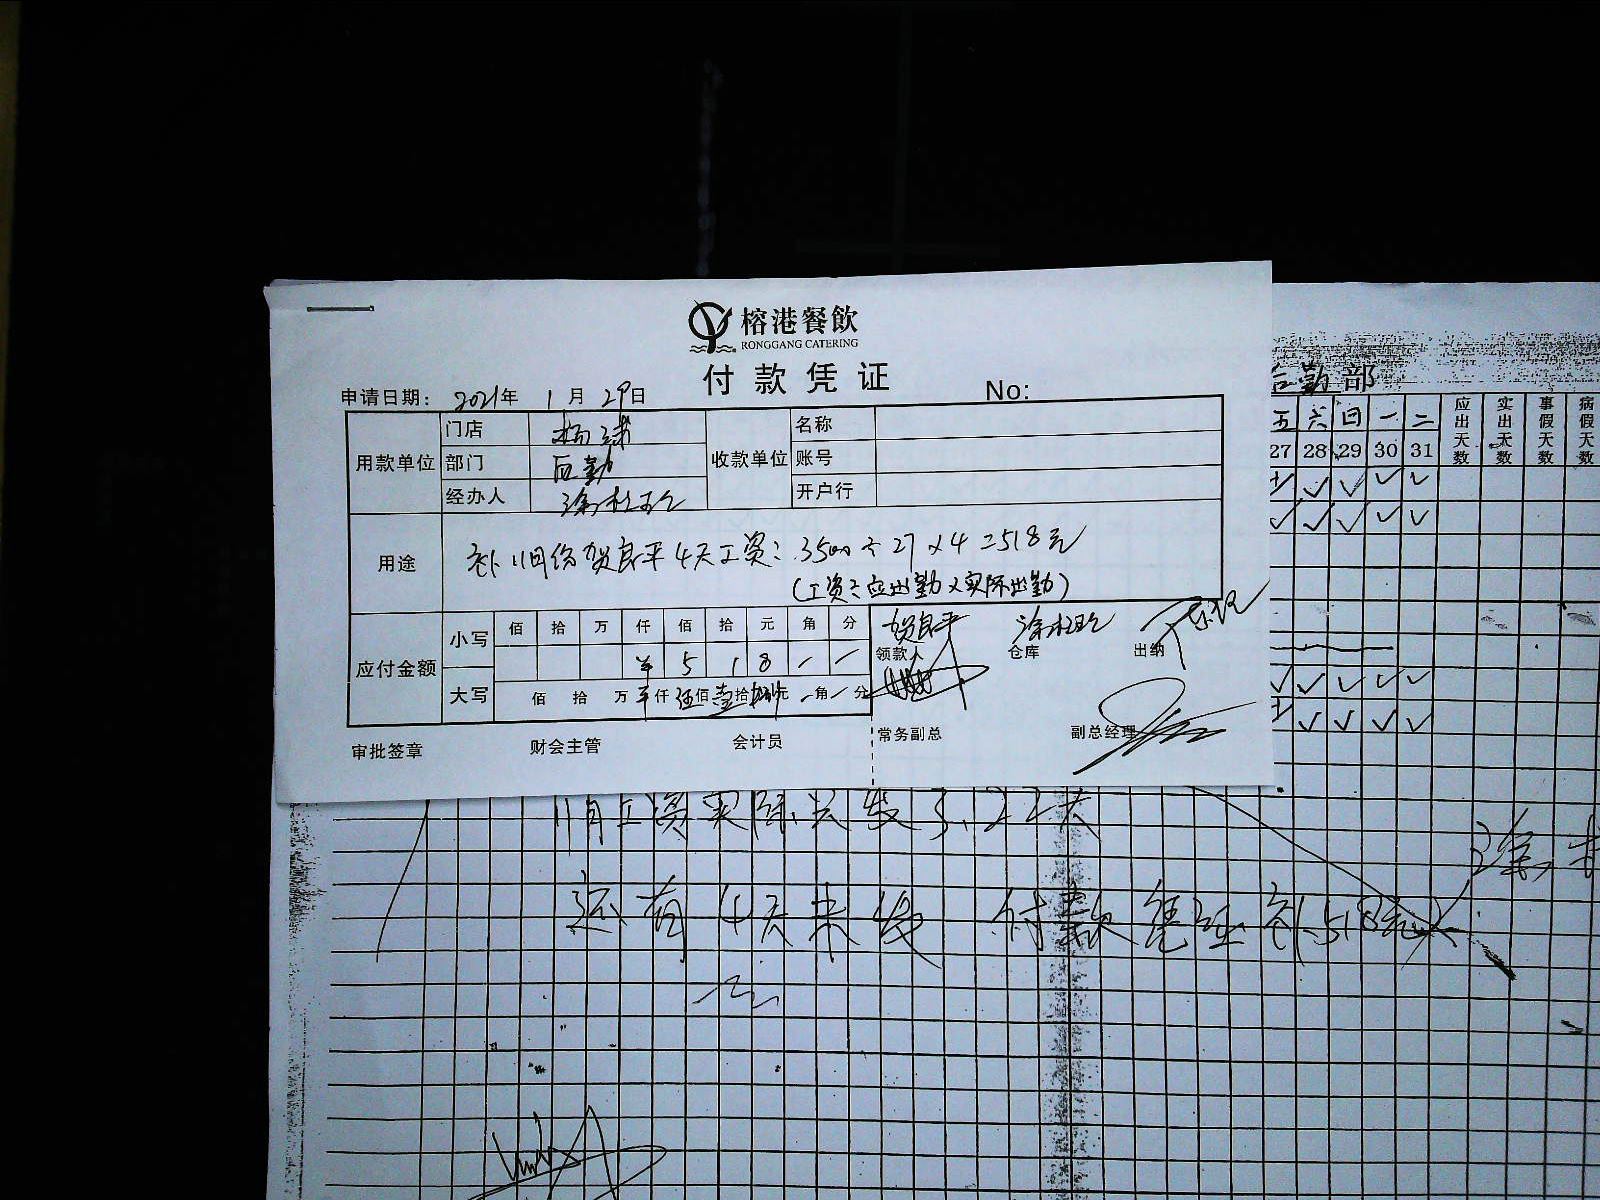 榕港餐飲
RONGGANG CATERING
付款凭证
申请日期: 2021年 1月 29日 No:
用款单位 门店
部门 后勤
经办人
收款单位 名称
账号
开户行
用途 补11月份贺良平4天工资: 3500÷27×4=518元
(工资÷应出勤×实际出勤)
应付金额 小写 佰 拾 万 仟 佰 拾 元 角 分
¥ 5 1 8 - -
大写 佰 拾 万 仟 伍佰 壹拾 捌元 角 分
贺良平
领款人 仓库 出纳
审批签章 财会主管 会计员 常务副总 副总经理
后勤部
五 六 日 一 二 应出天数 实出天数 事假天数 病假天数
27 28 29 30 31
11月工资实际只发了22天
还有4天未发 付款凭证补(518元)